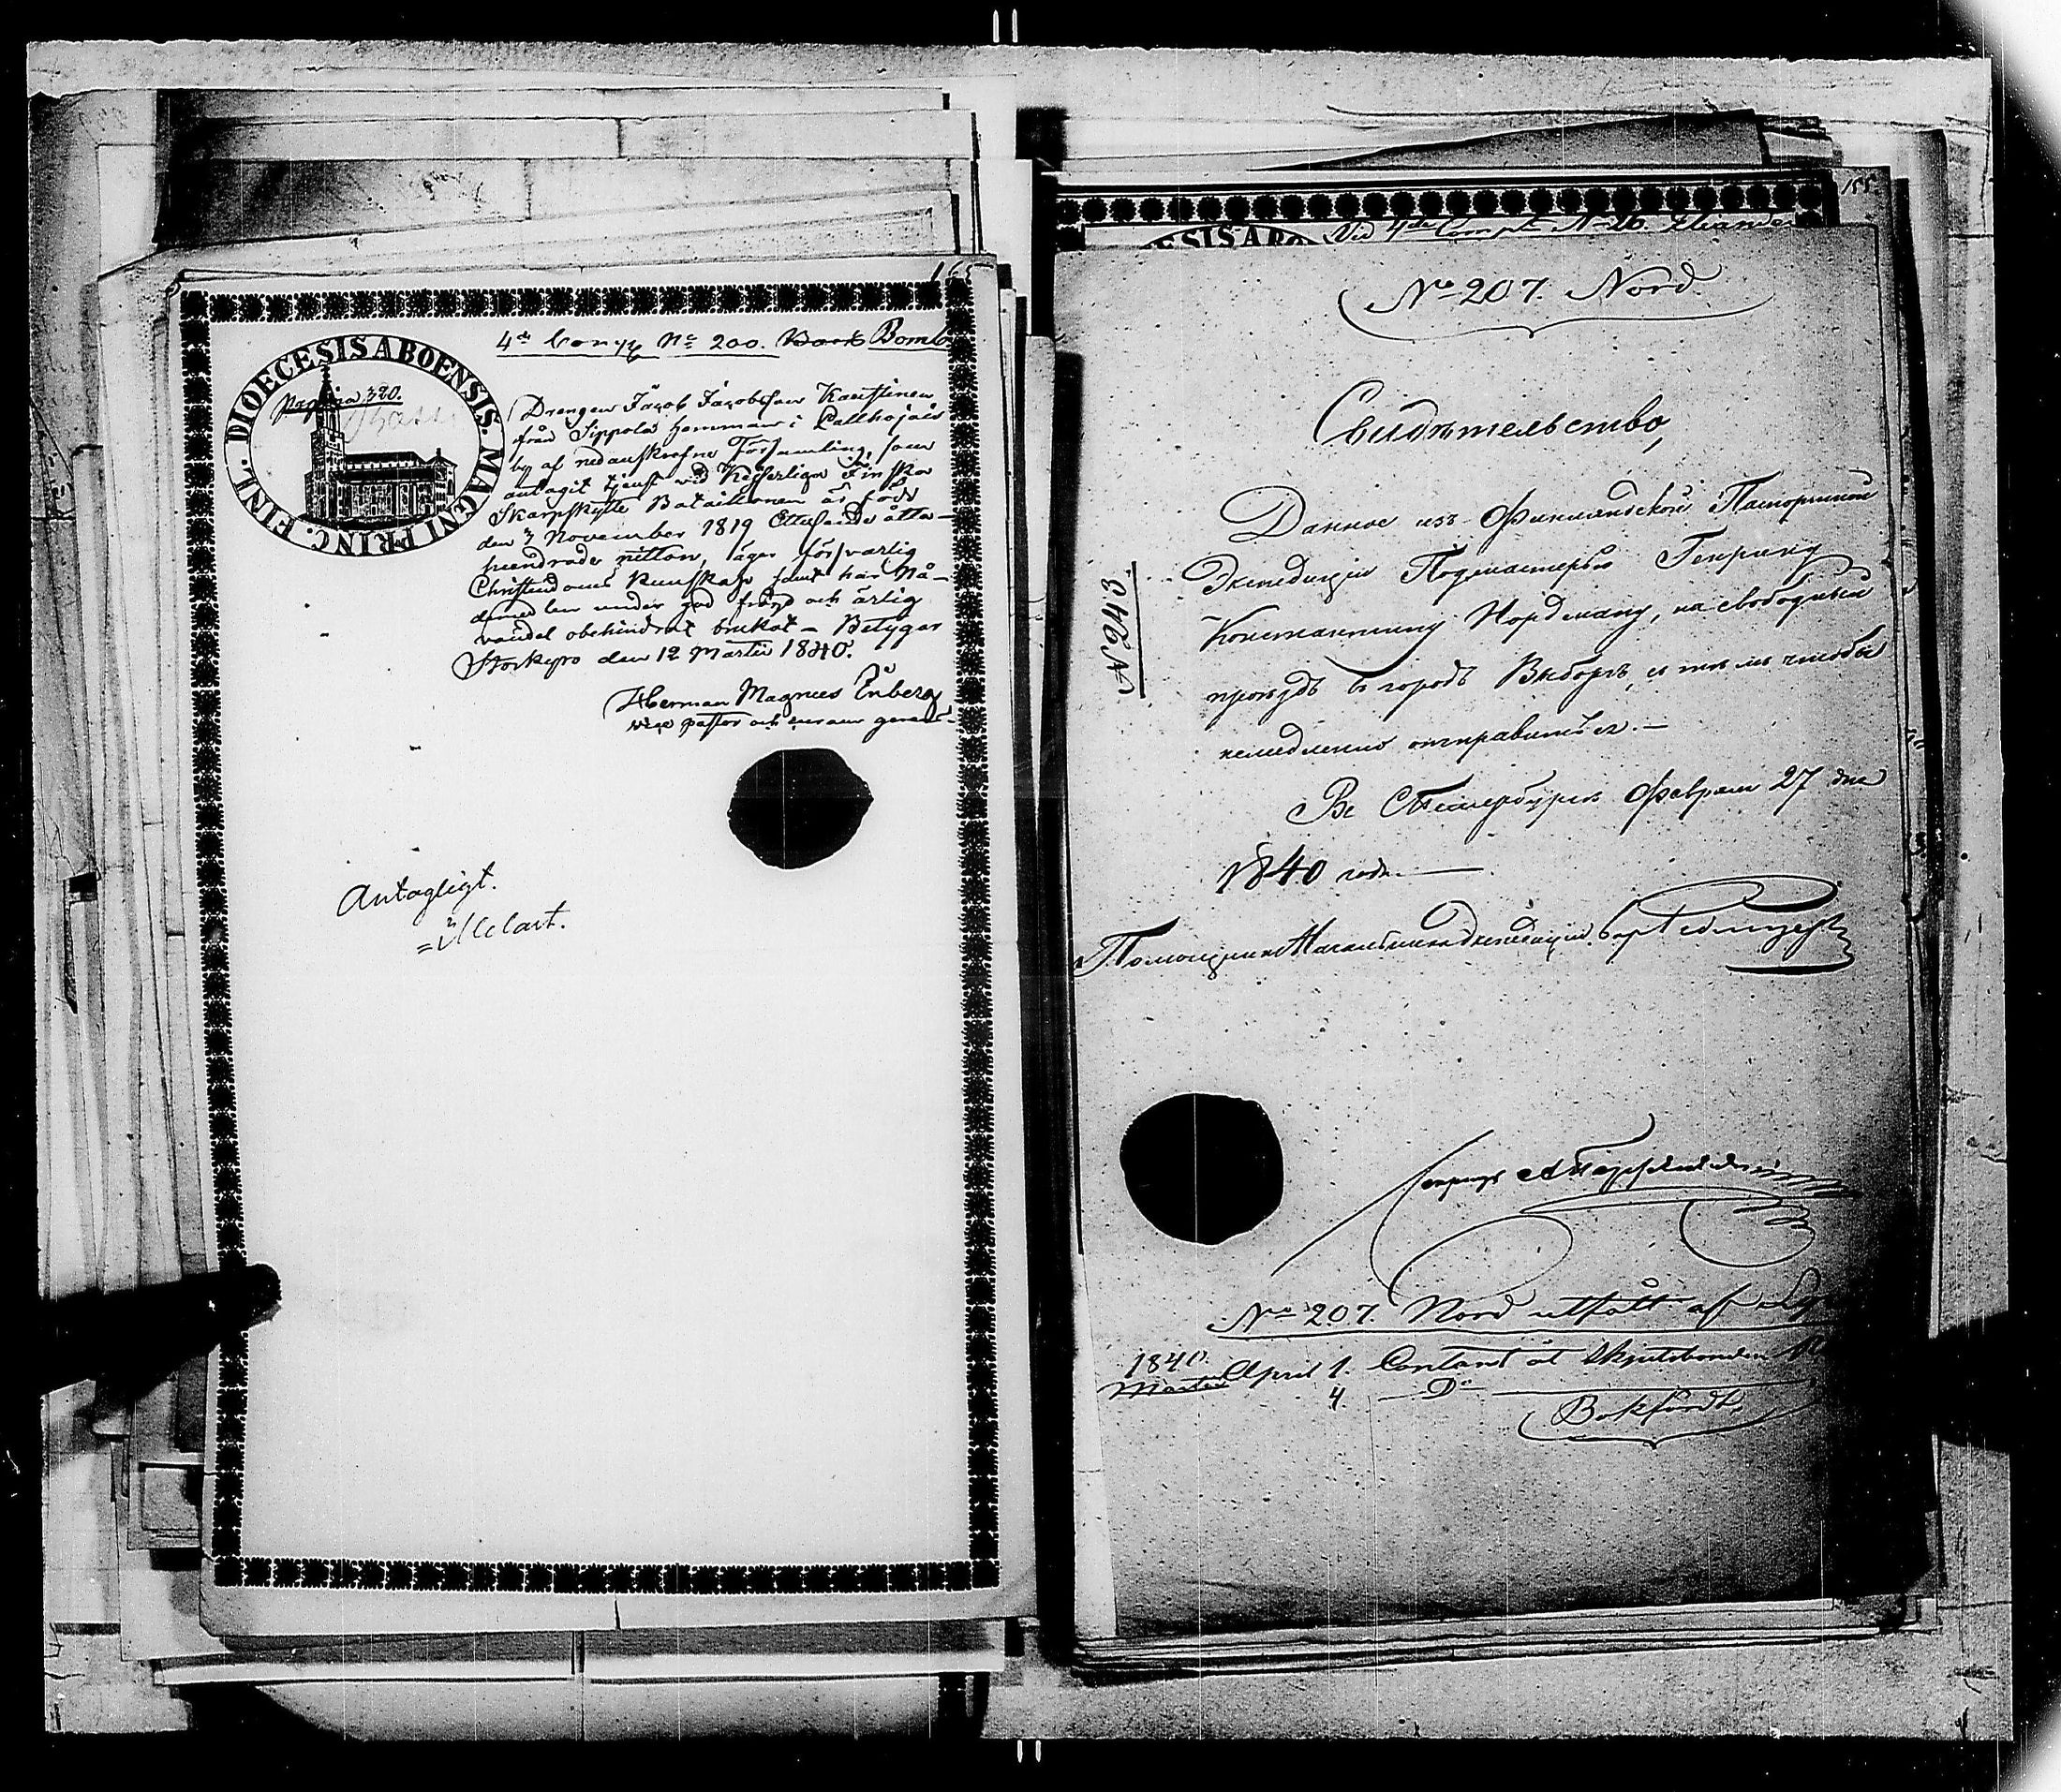 165
4de Comp. No 200. Bomb
DIOECESIS ABOENSIS. MAGNI PRINC. FINL.
Pagina 320.
Drengen Jacob Jacobsson Kaustinen
från Sippola hemman i Palhojais
by af nedanskrefne Församling, som
antagit tjenst vid Kejserliga Finska
Skarpskytte Bataillonen är född
den 3 November 1819 Ettusende åtta-
hundrade nitton, äger försvarlig
Christendoms kunskap samt har Nå-
dmedlen under god frägd och ärlig
vandel obehindrat brukat – Betygar
Storkyro den 12 Martii 1840.
Herman Magnus Enberg
vice pastor och
Antagligt.
155
Vid 4de Comp. No 26.
ESIS ABO
No 207. Nord
Свидѣтельство,
No 243.
Данное изъ Финляндской Паспортной
Экспедиціи Подмастерью Генриху
Константину Нордману, на свободный
проѣздъ въ городъ Выборгъ, и съ тѣмъ чтобы
немедленно отправиться. —
Въ СПетербургѣ Февраля 27 дня
1840 года. —
Помощникъ Начальника Экспедиціи
No 207. Nord utfått af
1840.
Martii April 1. Contant åt
4 — Do —